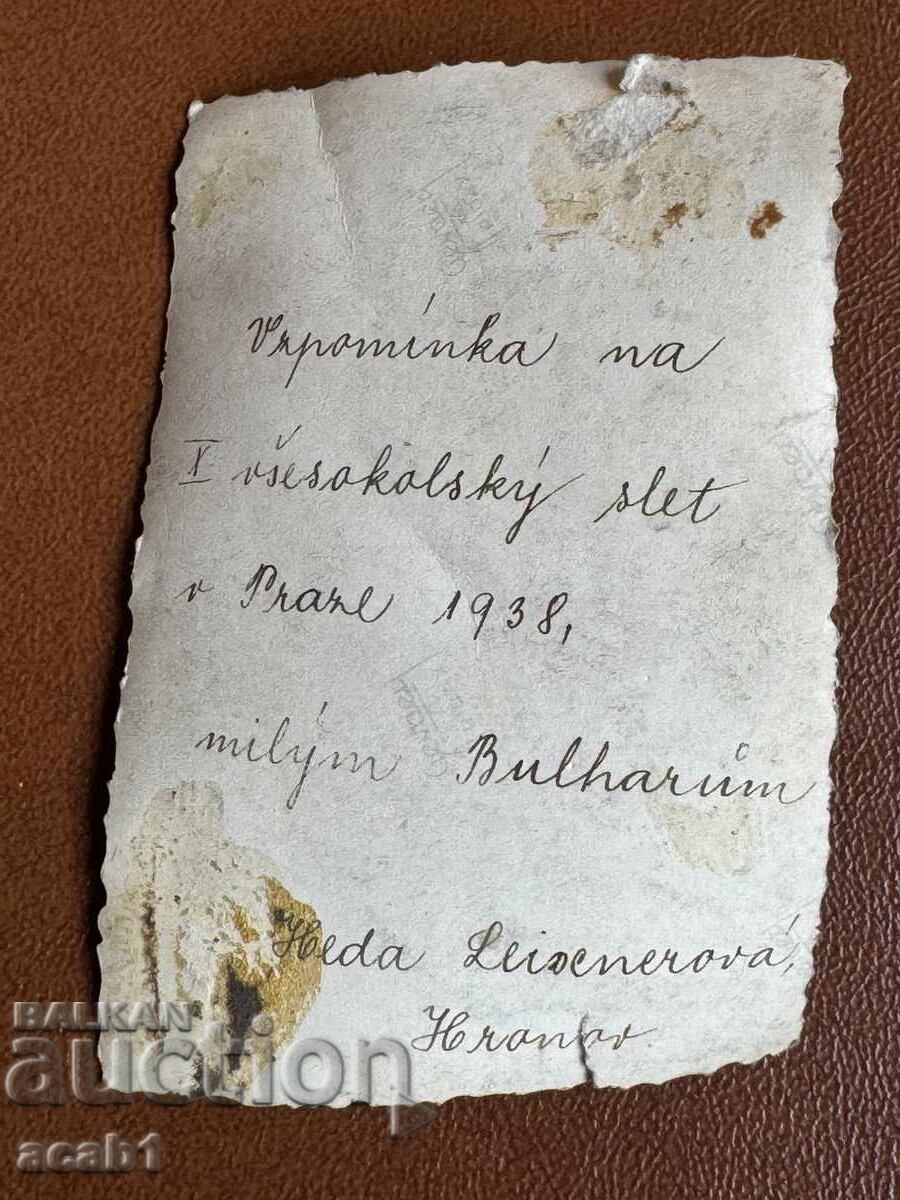 Vzpomínka na
X všesokolský slet
v Praze 1938,
milým Bulharům
Heda Leixnerová,
Hronov.
BALKAN
auction
acab1